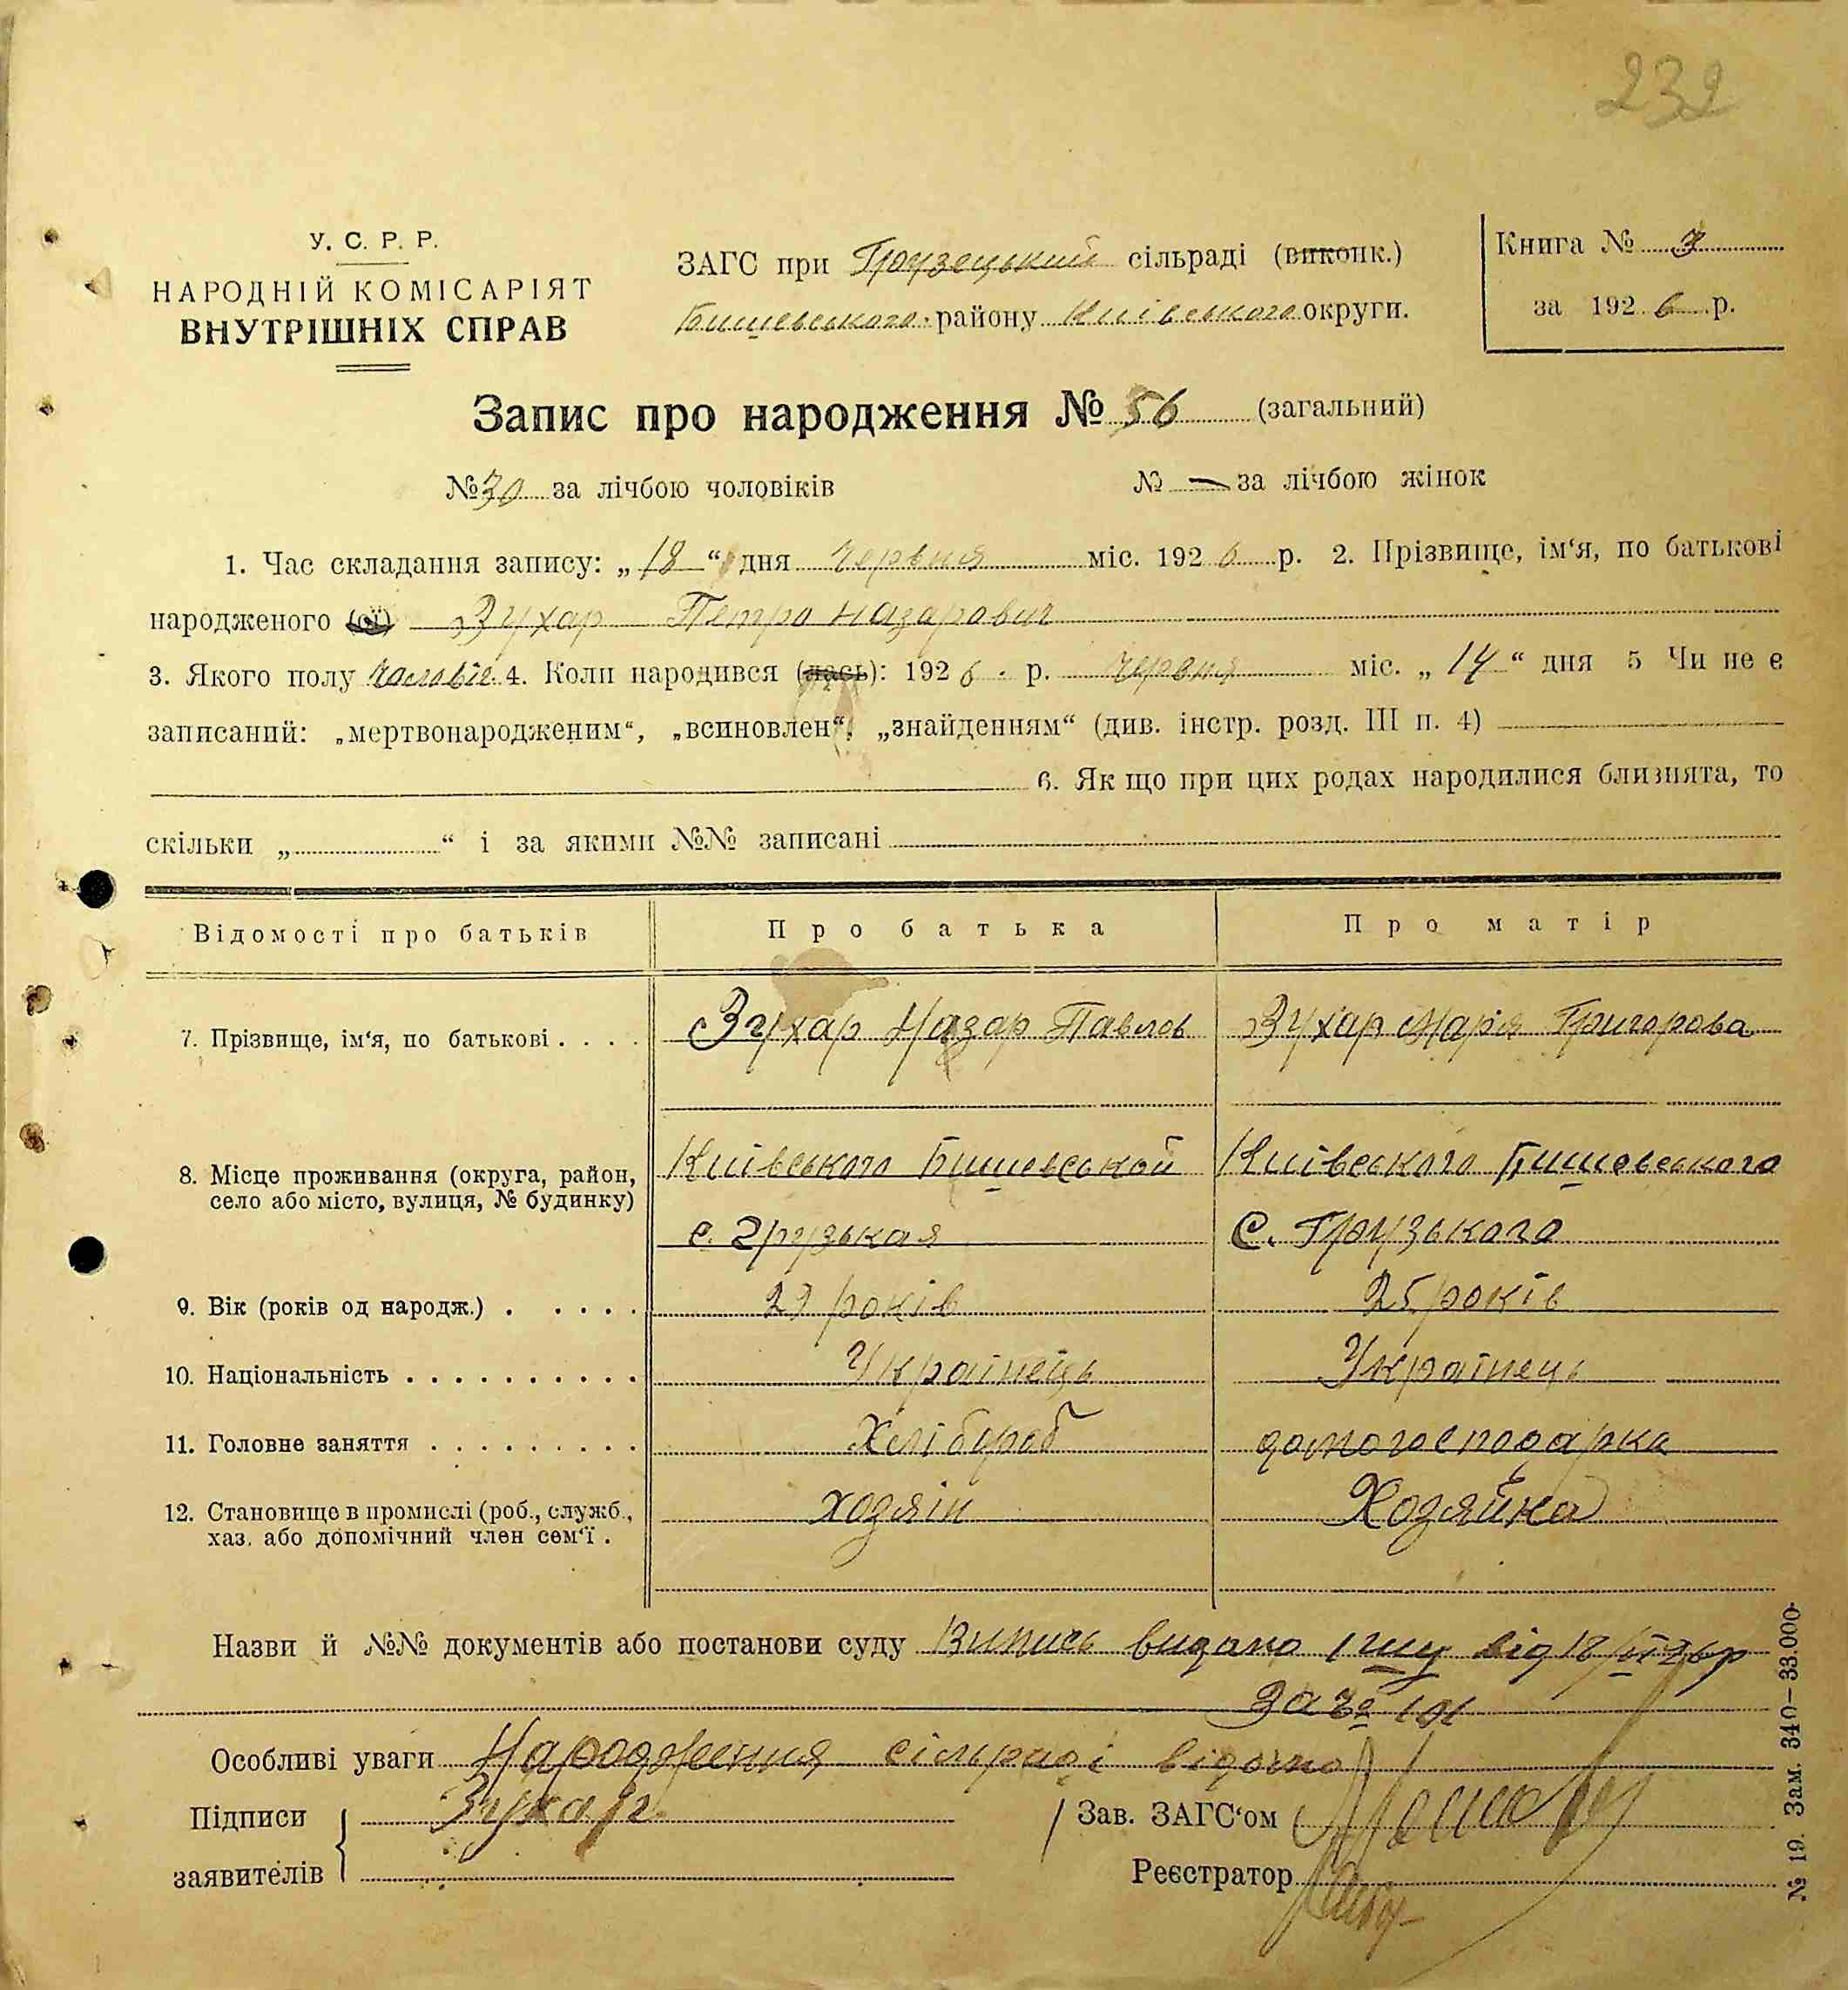 232
У. С. Р. Р.
НАРОДНІЙ КОМІСАРІЯТ
ВНУТРІШНІХ СПРАВ
ЗАГС при Грузецький сільраді (виконк.)
Бишевського району Київського округи.
Книга №
за 1926 р.
Запис про народження № 56 (загальний)
№ 30 за лічбою чоловіків № — за лічбою жінок
1. Час складання запису: „18“ дня червня міс. 1926 р. 2. Прізвище, ім‘я, по батькові
народженого (ої) Зухар Петро Назарович
3. Якого полу чоловіч. 4. Коли народився (лась): 1926 р. червня міс. „14“ дня 5 Чи не є
записаний: „мертвонародженим“, „всиновлен“, „знайденням“ (див. інстр. розд. III п. 4)
6. Як що при цих родах народилися близнята, то
скільки „ “ і за якими №№ записані
Відомості про батьків Про батька Про матір
7. Прізвище, ім‘я, по батькові . . . . Зухар Назар Павлов Зухар Марія Григорова
8. Місце проживання (округа, район, село або місто, вулиця, № будинку) Київського Бишевської Київського Бишовського
с. Грузькая С. Грузького
9. Вік (років од народж.) . . . . . 29 років 25 років
10. Національність . . . . . . . . . . Українець Українець
11. Головне заняття . . . . . . . . . Хлібороб домогосподарка
12. Становище в промислі (роб., служб., хаз. або допомічний член сем‘ї . хозяін Хозяйка
Назви й №№ документів або постанови суду Випись видано від 18/VI 26 р
за №
Особливі уваги Народження сільраді відомо
Підписи заявителів Зухар
Зав. ЗАГС‘ом
Реєстратор
№ 19. Зам. 340–33.000.